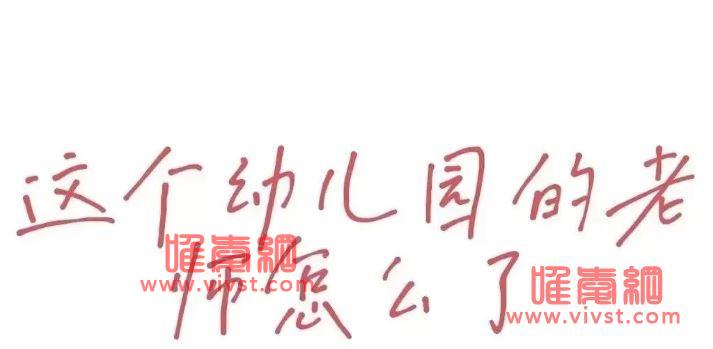 这个幼儿园的老
师怎么了
唯壹網
www.vivst.com
唯壹網
www.vivst.com